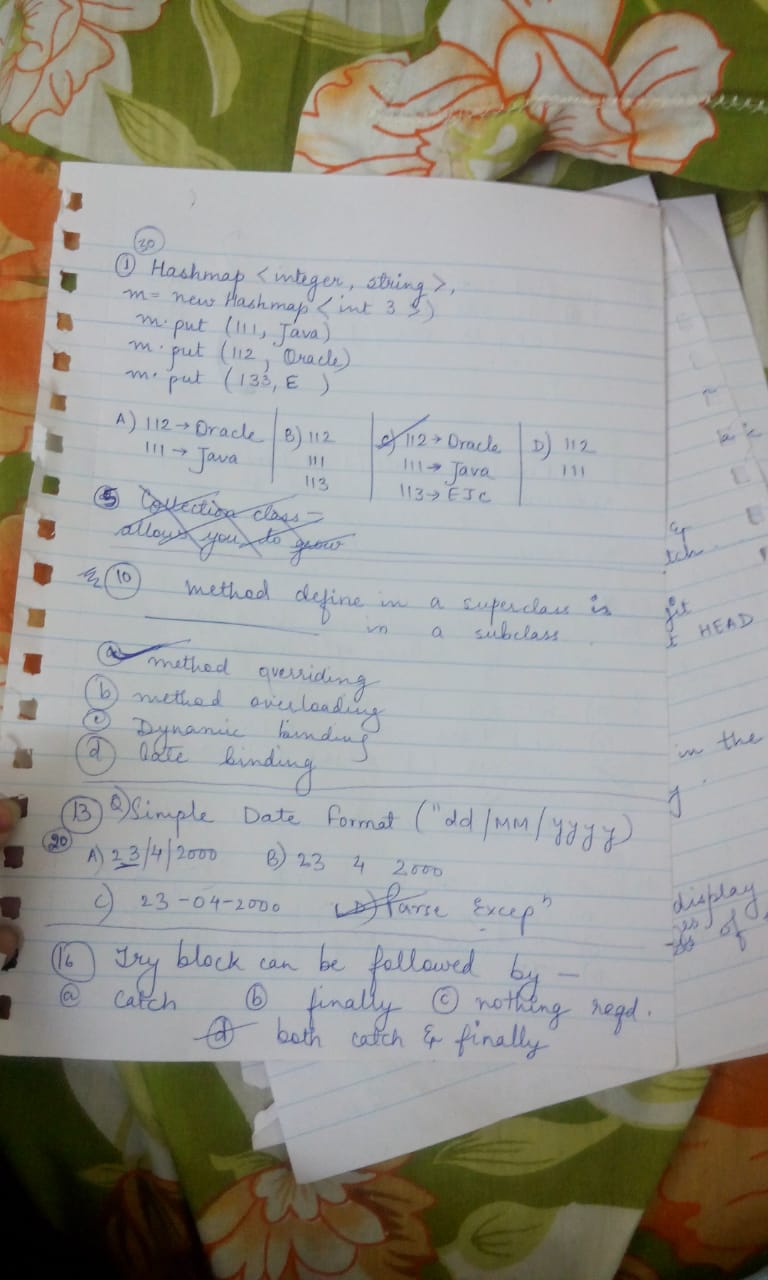 30
① Hashmap <integer, string>,
m = new Hashmap <int 3 S)
m.put (111, Java)
m.put (112, Oracle)
m.put (133, E )
A) 112 → Oracle
111 → Java
B) 112
111
113
C) 112 → Oracle
111 → Java
113 → EJC
D) 112
111
⑤ Collection class -
allows you to grow
⑩ method define in a superclass is
________ in a subclass
ⓐ method overriding
ⓑ method overloading
ⓒ Dynamic binding
ⓓ late binding
⑬ Q) Simple Date Format ("dd/MM/yyyy)
20
A) 23/4/2000 B) 23 4 2000
C) 23-04-2000 D) Parse Excepⁿ
⑯ Try block can be followed by -
ⓐ catch ⓑ finally ⓒ nothing reqd.
ⓓ both catch & finally
HEAD
in the
display
of